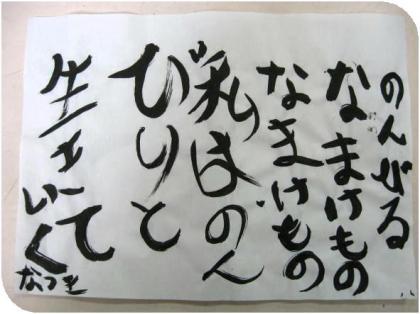 のんびる
なまけもの
なまけもの
私はのん
びりと
生きて
いく
なつき